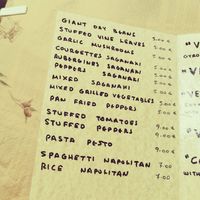 GIANT DRY BEANS
STUFFED VINE LEAVES 5.00 €
GARLIC MUSHROOMS 5.00 €
COURGETTES SAGANAKI
AUBERGINES SAGANAKI
PEPPERS SAGANAKI
MIXED SAGANAKI
MIXED GRILLED VEGETABLES
PAN FRIED PEPPERS 5.00 €
STUFFED TOMATOES
STUFFED PEPPERS
PASTA PESTO 9.00 €
SPAGHETTI NAPOLITAN 7.00
RICE NAPOLITAN 7.00
"V
"VE
"V
"C
WITH